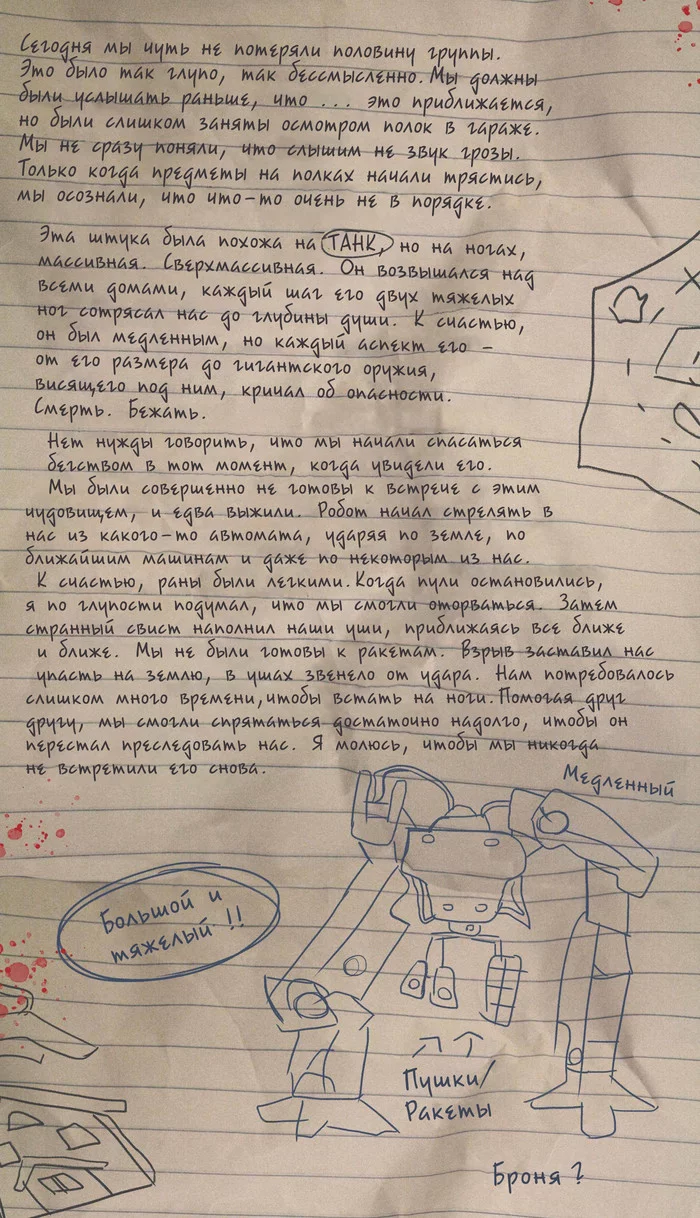 Сегодня мы чуть не потеряли половину группы.
Это было так глупо, так бессмысленно. Мы должны
были услышать раньше, что ... это приближается,
но были слишком заняты осмотром полок в гараже.
Мы не сразу поняли, что слышим не звук грозы.
Только когда предметы на полках начали трястись,
мы осознали, что что-то очень не в порядке.
Эта штука была похожа на ТАНК, но на ногах,
массивная. Сверхмассивная. Он возвышался над
всеми домами, каждый шаг его двух тяжелых
ног сотрясал нас до глубины души. К счастью,
он был медленным, но каждый аспект его -
от его размера до гигантского оружия,
висящего под ним, кричал об опасности.
Смерть. Бежать.
Нет нужды говорить, что мы начали спасаться
бегством в тот момент, когда увидели его.
Мы были совершенно не готовы к встрече с этим
чудовищем, и едва выжили. Робот начал стрелять в
нас из какого-то автомата, ударяя по земле, по
ближайшим машинам и даже по некоторым из нас.
К счастью, раны были легкими. Когда пули остановились,
я по глупости подумал, что мы смогли оторваться. Затем
странный свист наполнил наши уши, приближаясь все ближе
и ближе. Мы не были готовы к ракетам. Взрыв заставил нас
упасть на землю, в ушах звенело от удара. Нам потребовалось
слишком много времени, чтобы встать на ноги. Помогая друг
другу, мы смогли спрятаться достаточно надолго, чтобы он
перестал преследовать нас. Я молюсь, чтобы мы никогда
не встретили его снова.
Медленный
Большой и
тяжелый !!
Пушки/
Ракеты
Броня ?